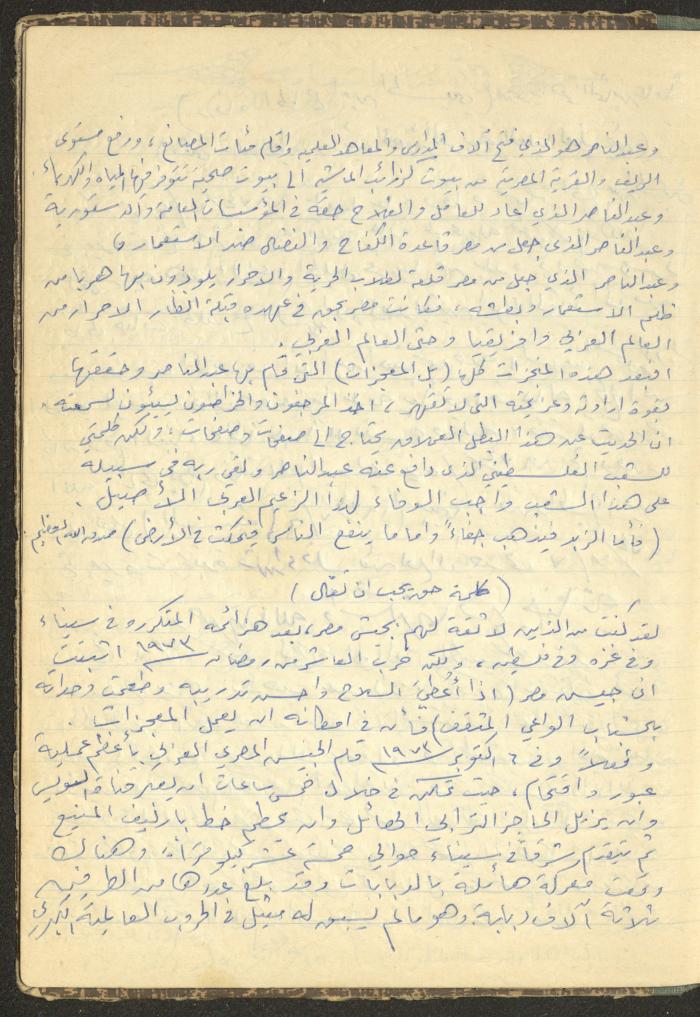 وعبد الناصر هو الذي فتح آلاف المدارس والمعاهد العلمية واقام مئات المصانع، ورفع مستوى
الريف والقرية المصرية من بيوت كزرائب الماشية الى بيوت صحية تتوفر فيها المياه والكهرباء.
وعبد الناصر الذي اعاد للعامل والفلاح حقه في المؤسسات العامة والدستورية
وعبد الناصر الذي جعل من مصر قاعدة الكفاح والنضال ضد الاستعمار
وعبد الناصر الذي جعل من مصر قلعة لطلاب الحرية والاحرار يلوذون بها هربا من
ظلم الاستعمار وبطشه، فكانت مصر بحق في عهده قبلة انظار الاحرار من
العالم العربي وافريقيا وحتى العالم الغربي.
افبعد هذه المنجزات كلها (بل المعجزات) التي قام بها عبد الناصر وحققها
بقوة ارادته وعزيمته التي لا تقهر، اخذ المرجفون والخراصون يسيئون لسمعته.
ان الحديث عن هذا البطل العملاق يحتاج الى صفحات وصفحات، ولكن كلمتي
للشعب الفلسطيني الذي دافع عنه عبد الناصر ولقي ربه في سبيله
على هذا الشعب واجب الوفاء لهذا الزعيم العربي الأصيل.
(فأما الزبد فيذهب جفاءً واما ما ينفع الناس فيمكث في الأرض) صدق الله العظيم
(كلمة حق يجب ان تقال)
لقد كنت من الذين لا ثقة لهم بجيش مصر، بعد هزائمه المتكررة في سيناء
وفي غزه وفي فلسطين، ولكن حرب العاشر من رمضان سنة ١٩٧٣ اثبتت
ان جيش مصر (اذا أُعطيَ السلاح واحسن تدريبه وطعمت وحداته
بالشباب الواعي المثقف) فأن في امكانه ان يعمل المعجزات.
وفعلاً وفي ٦ اكتوبر سنة ١٩٧٣ قام الجيش المصري العربي بأعظم عملية
عبور واقتحام، حيث تمكن في خلال خمس ساعات ان يعبر قناة السويس
وان يزيل الحاجز الترابي الهائل وان يحطم خط بارليف المنيع
ثم يتقدم شرقاً في سيناء حوالي خمسة عشر كيلو متراً، وهناك
وقعت معركة هائلة بالدبابات وقد بلغ عددها من الطرفين
ثلاثة آلاف دبابة وهو ما لم يسبق له مثيل في الحروب العالمية الكبرى